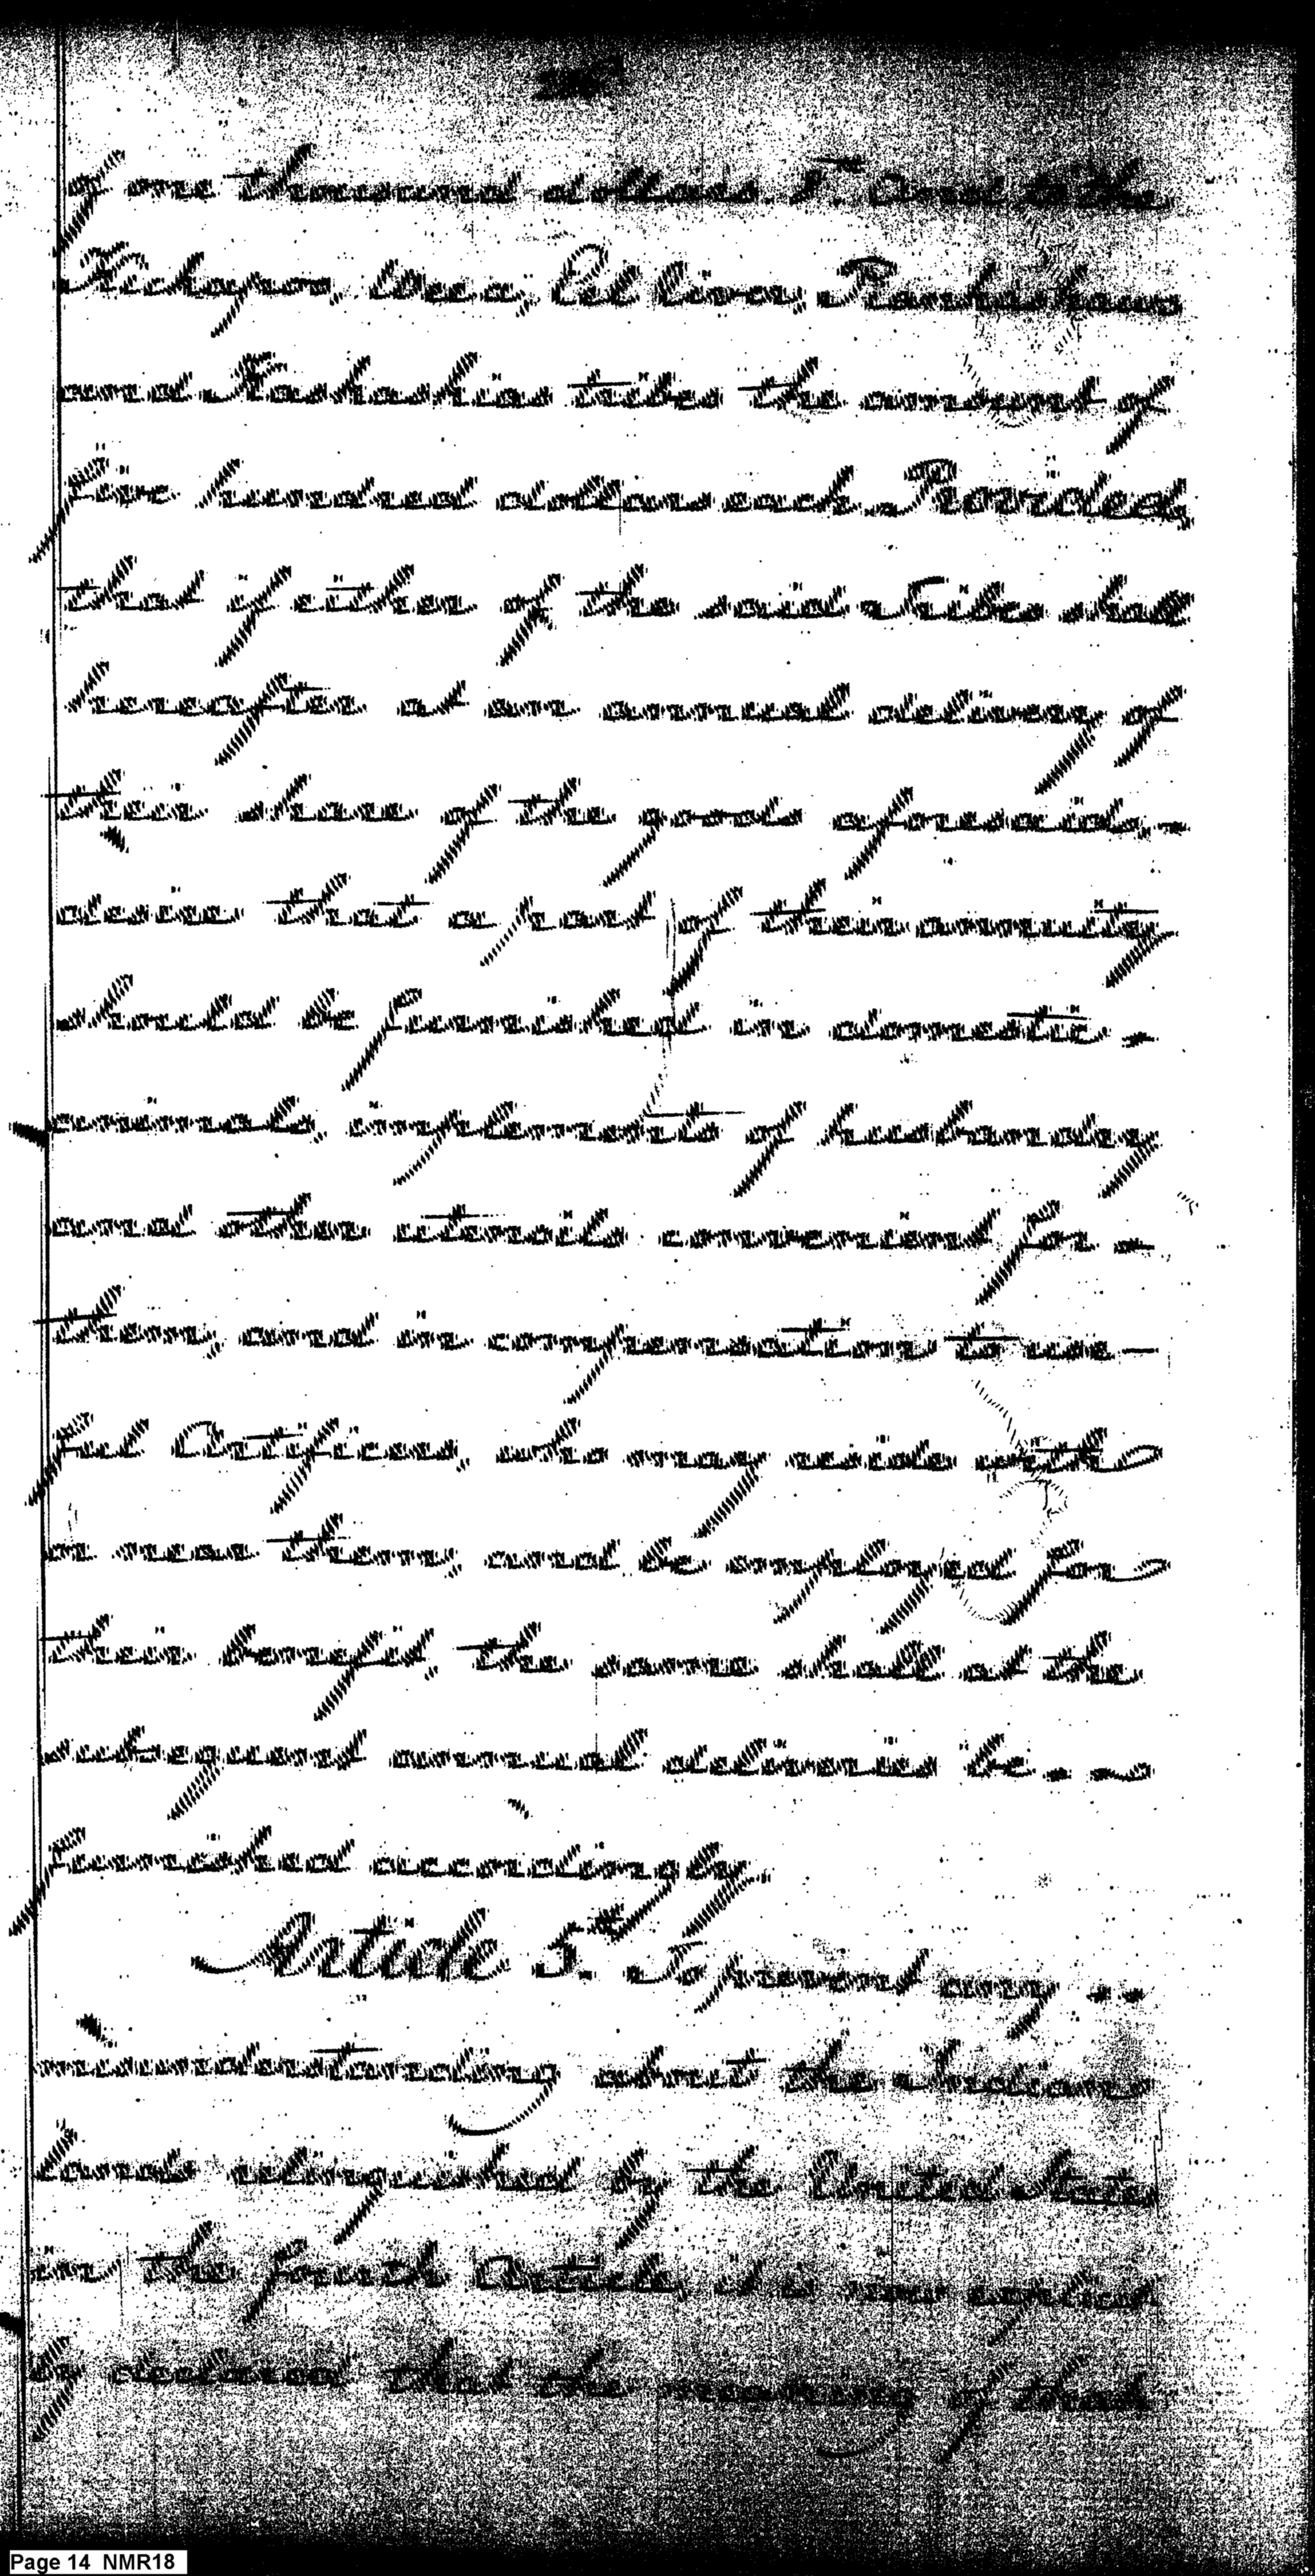 of one thousand dollars. 5th. And to the
Kickapoo, Weea, Eel River, Piankashaws
and Kaskaskias tribes the amount of
five hundred dollars each. Provided,
that if either of the said Tribes shall
hereafter at an annual delivery of
their share of the goods aforesaid, -
desire that a part of their annuity
should be furnished in domestic -
animals, implements of husbandry
and other utensils convenient for -
them, and in compensation to use-
ful Artificers, who may reside with
or near them, and be employed for
their benefit, the same shall at the
subsequent annual deliveries be - -
furnished accordingly.
Article 5th. To prevent any - -
misunderstanding about the Indian
lands relinquished by the United States
in the fourth Article, it is now explicit
ly declared that the meaning of that
Page 14 NMR18